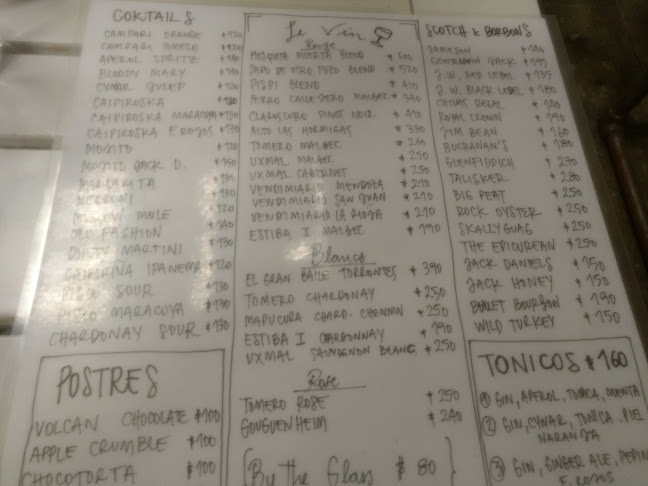 COKTAILS
CAMPARI ORANGE $120
CAMPARI POMELO $120
APEROL SPRITZ
BLOODY MARY
CYNAR JULEP $120
CAIPIROSKA
CAIPIROSKA MARACUYA $130
CAIPIROSKA F. ROJOS $130
MOJITO
MOJITO JACK D. $150
MARGARITA
NEGRONI $130
MOSCOW MULE $120
OLD FASHION $140
DIRTY MARTINI $130
CAIPIRIÑA IPANEMA $120
PISCO SOUR $130
PISCO MARACUYA $130
CHARDONAY SOUR $130
POSTRES
VOLCAN CHOCOLATE $100
APPLE CRUMBLE $100
CHOCOTORTA $100
Le Vin
Rouge
MOSQUITA MUERTA BLEND $600
SAPO DE OTRO POZO BLEND $520
PISPI BLEND $410
PERRO CALLEJERO MALBEC $340
CLAROSCURO PINOT NOIR $410
ALTO LAS HORMIGAS $330
TOMERO MALBEC $260
UXMAL MALBEC $250
UXMAL CABERNET $250
VENDIMIARIO MENDOZA $210
VENDIMIARIO SAN JUAN $210
VENDIMIARIO LA RIOJA $210
ESTIBA I MALBEC $190
Blancs
EL GRAN BAILE TORRONTES $390
TOMERO CHARDONAY $250
MAPUCURA CHARD. CHENNIN $250
ESTIBA I CHARDONNAY $190
UXMAL SAUVIGNON BLANC $250
Rose
TOMERO ROSE $250
GOUGUENHEIM $240
By the Glass $80
SCOTCH & BORBONS
JAMESON $140
GENTLEMAN JACK $195
J.W. RED LABEL $135
J.W. BLACK LABEL $180
CHIVAS REGAL $190
ROYAL CROWN $190
JIM BEAN $160
BUCHANAN'S $180
GLENFIDDICH $270
TALISKER $280
BIG PEAT $250
ROCK OYSTER $250
SKALLYGUAG $250
THE EPICUREAN $250
JACK DANIELS $150
JACK HONEY $150
BULLET BOURBON $190
WILD TURKEY $150
TONICOS $160
① GIN, APEROL, TONICA, MENTA
② GIN, CYNAR, TONICA, PIEL
NARANJA
③ GIN, GINGER ALE, PEPINO
F. ROJOS